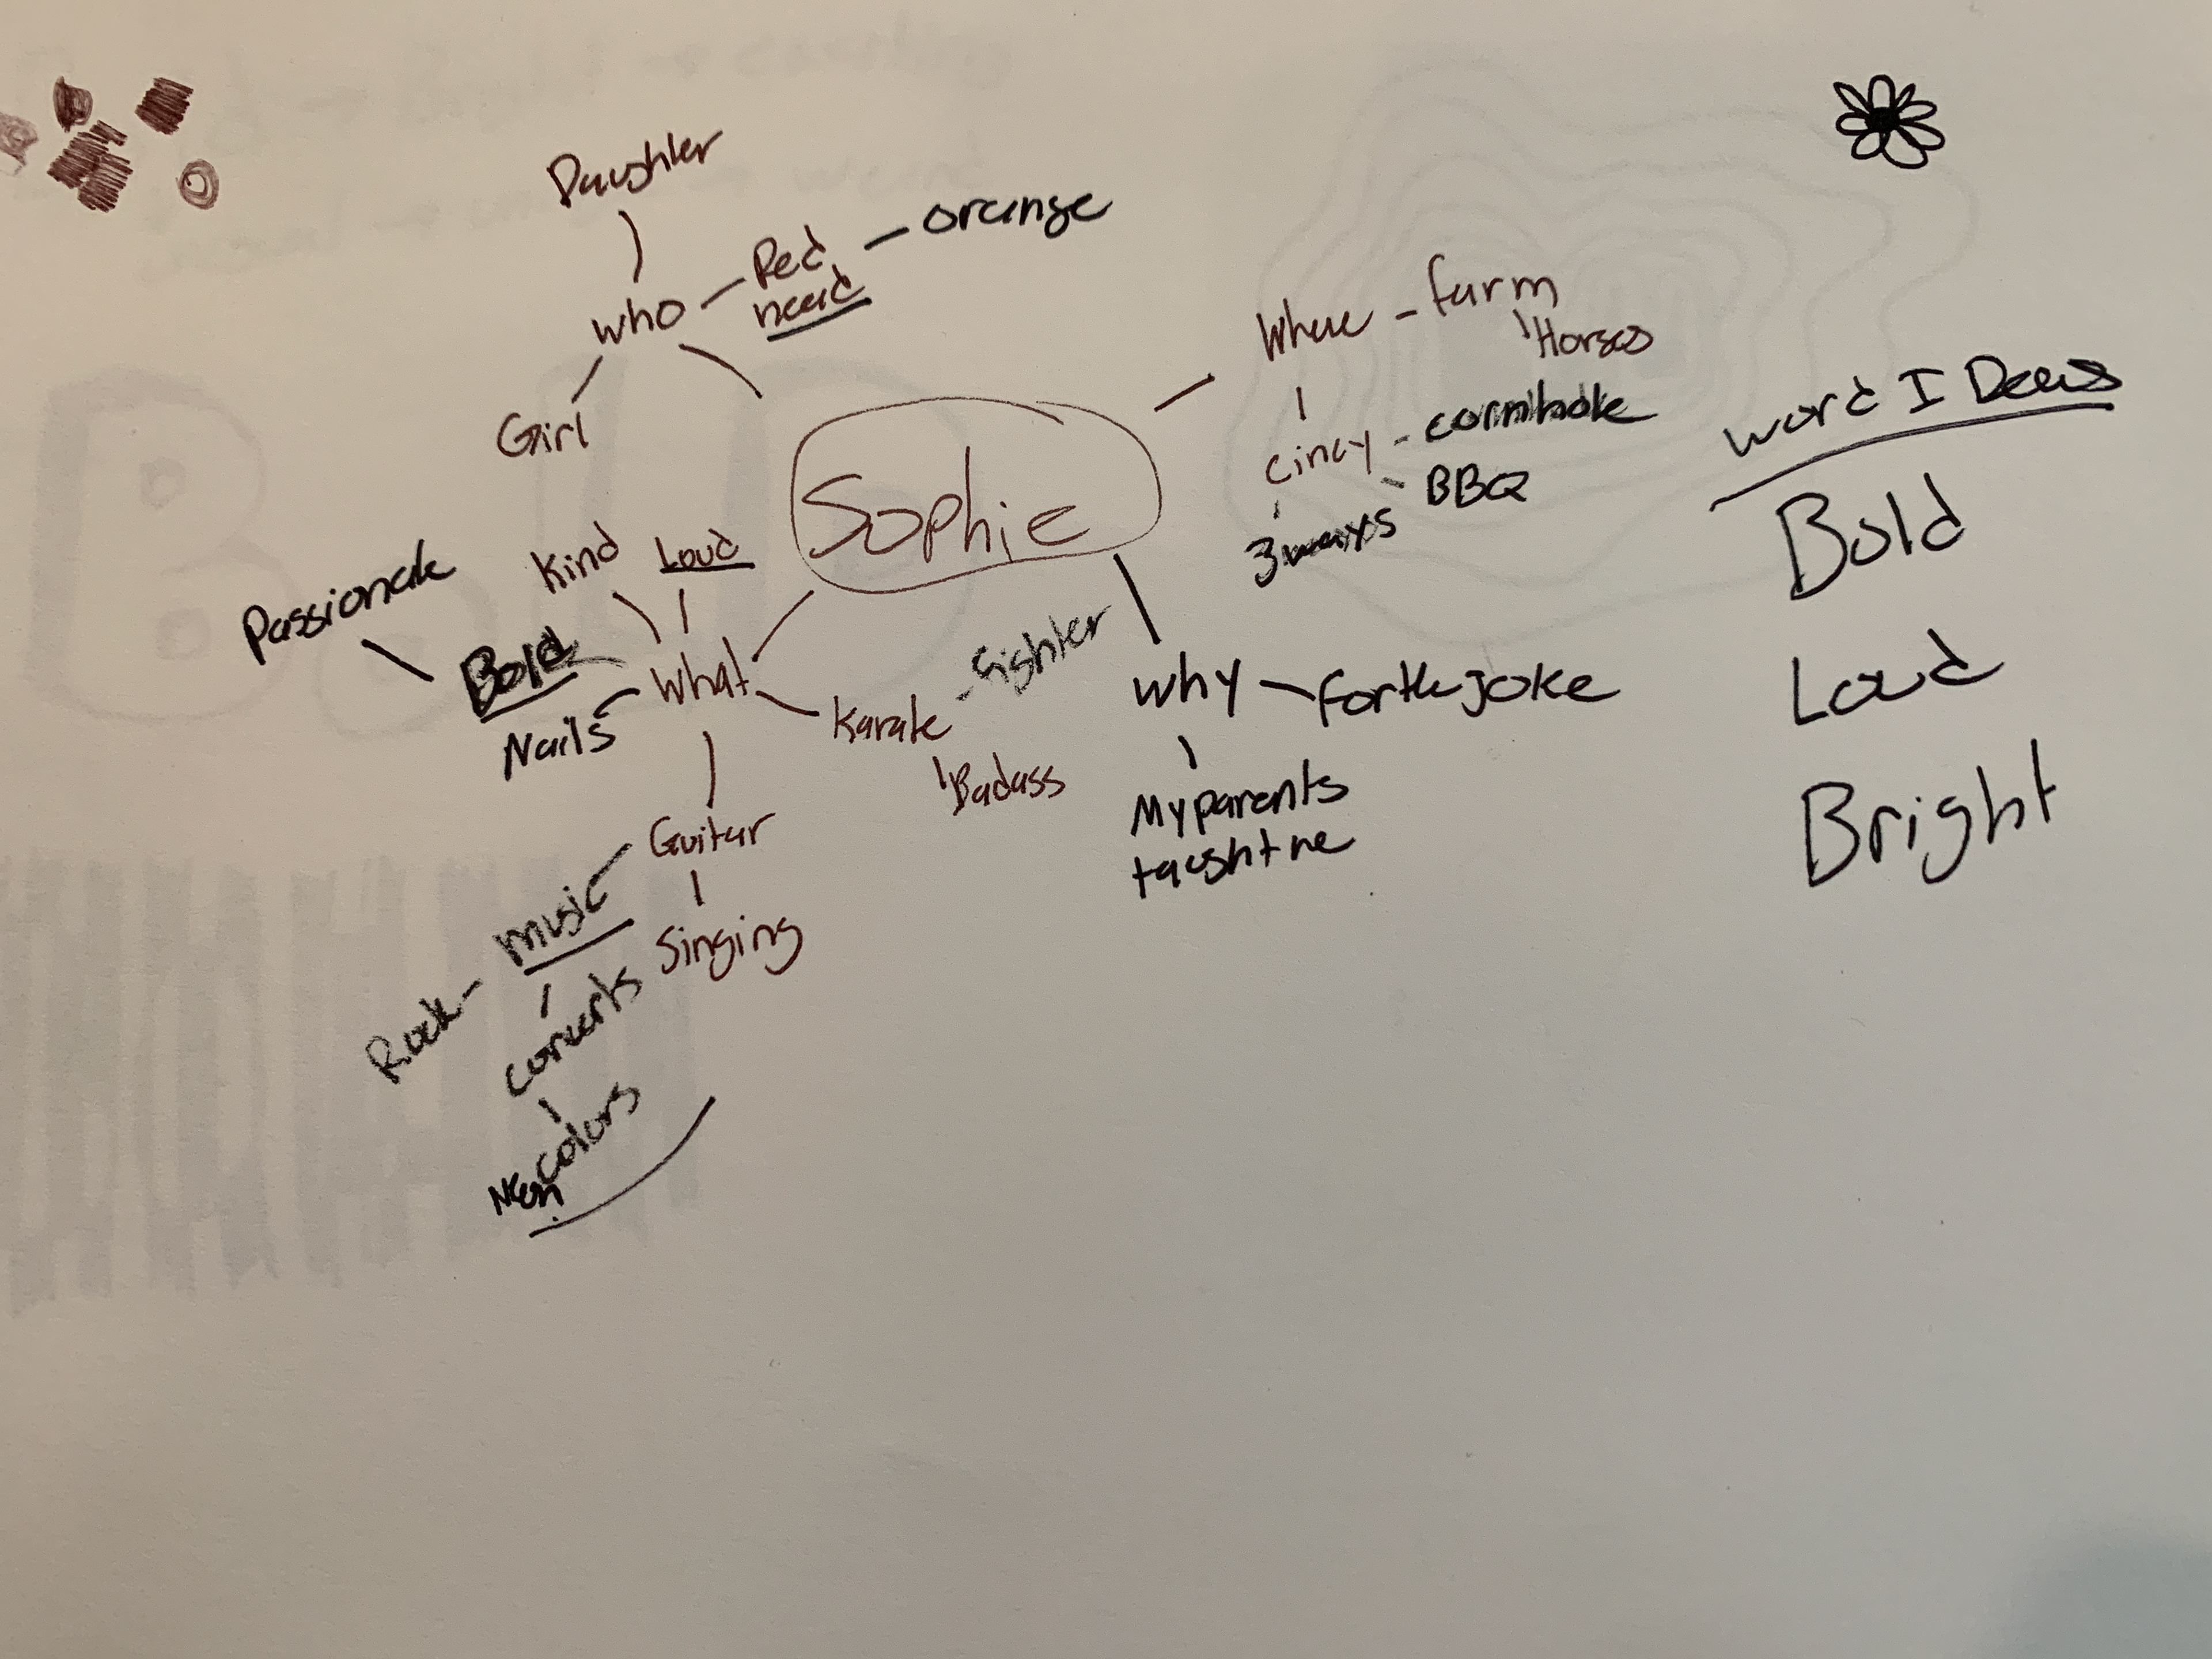 Daughter
Red
head
orange
who
Girl
Sophie
Where
farm
Horses
Cincy
cornhole
BBQ
3ways
word I Draws
Bold
Loud
Bright
Kind
Loud
Passionate
Bold
What
Nails
Karate
fighter
Badass
why
for the joke
My parents
taught me
Guitar
music
Singing
Rock
concerts
colors
Neon